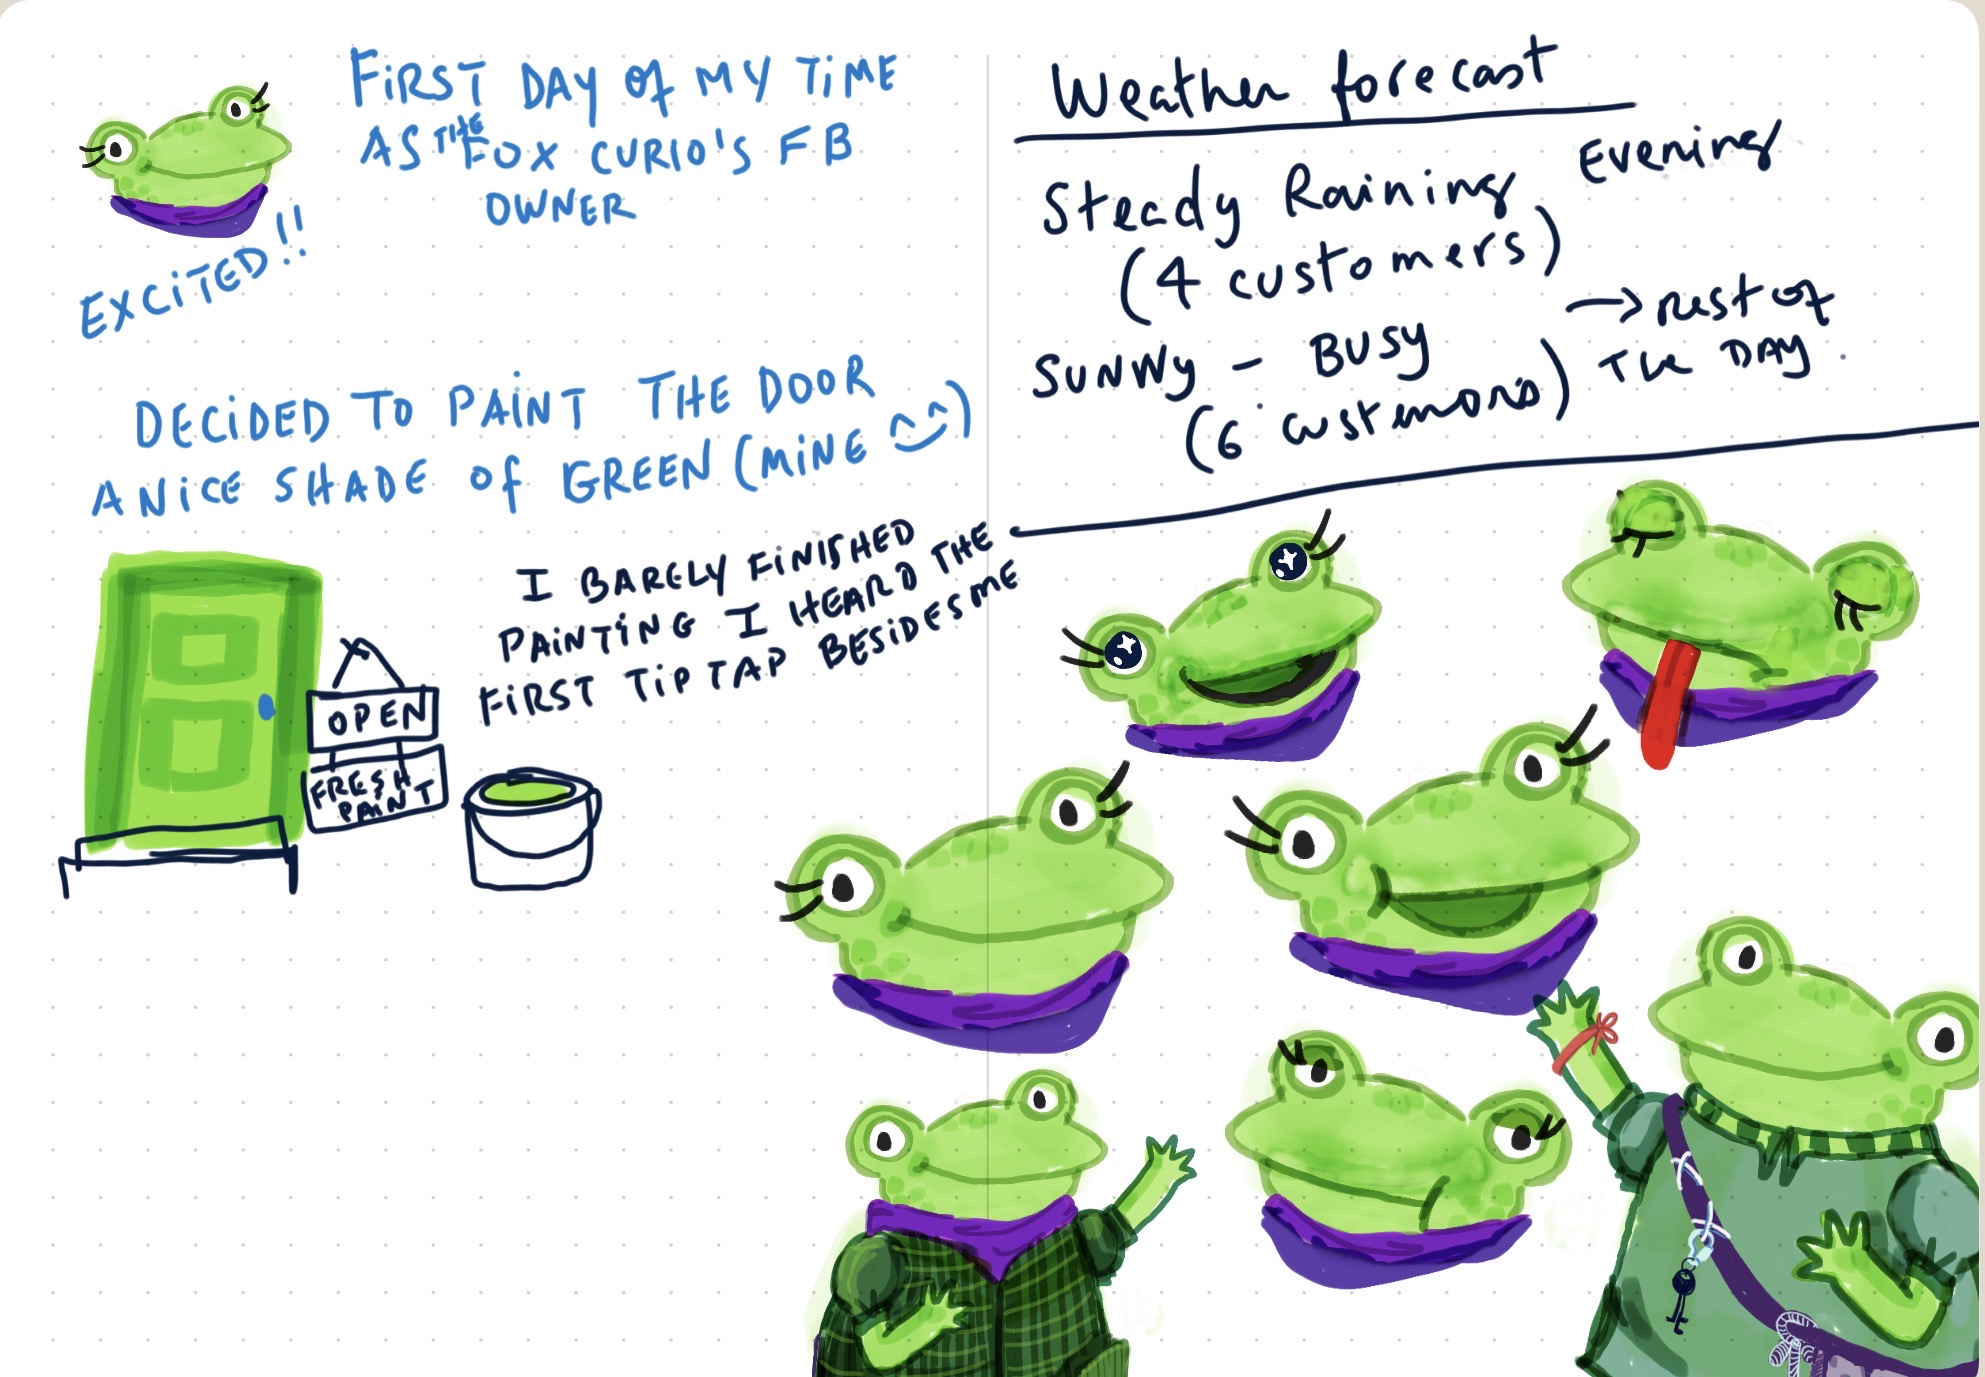 FiRST DAY of MY TiME
AS THE FOX CURIO'S FB
OWNER
EXCiTED!!
DECiDED TO PAiNT THE DOOR
A NiCE SHADE of GREEN (MiNE ^‿^)
I BARELY FiNiSHED
PAiNTiNG I HEARD THE
FiRST TiP TAP BESiDES ME
OPEN
FRESH
PAiNT
Weather forecast
Steady Raining Evening
(4 customers)
SUNNy – BUSy → rest of
(6 customors) THE DAY.